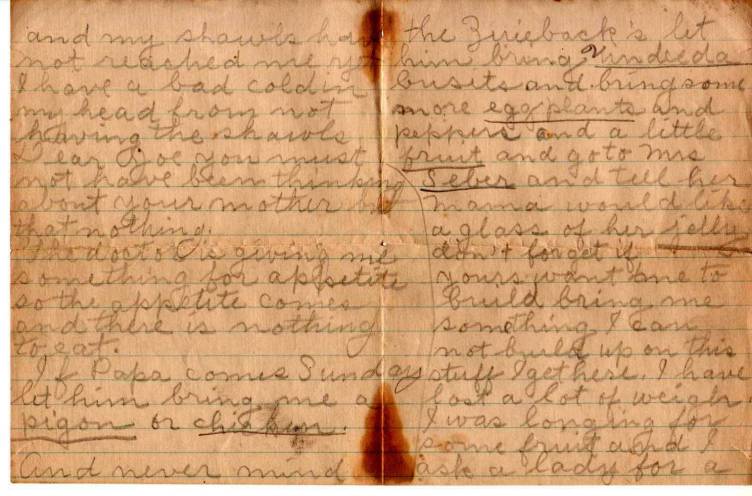 and my shawls have
not reached me yet
I have a bad cold in
my head from not
having the shawls
Dear Joe you must
not have been thinking
about your mother but
that nothing.
The doctor is giving me
something for appsetite
so the appetite comes
and there is nothing
to eat.
If Papa comes Sunday
let him bring me a
pigon or chicken.
And never mind
the Zrieback's let
him bring Undeeda
busits and bring some
more egg plants and
peppers and a little
fruit and go to Mrs
Seber and tell her
mama would like
a glass of her jelly
don't forget if
yours want me to
build bring me
something I can
not build up on this
stuff I get here. I have
lost a lot of weigh
I was longing for
some fruit and I
ask a lady for a